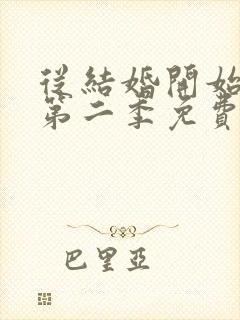 從結婚開始
第二季免費
巴里亞